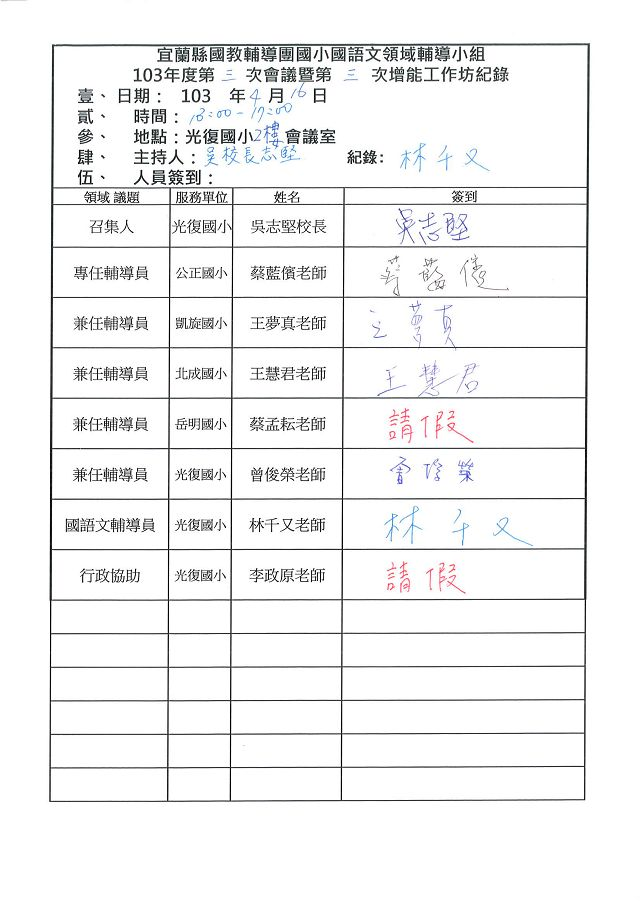 宜蘭縣國教輔導團國小國語文領域輔導小組
103年度第 三 次會議暨第 三 次增能工作坊紀錄
壹、日期： 103 年 4 月 16 日
貳、 時間：13:00-17:00
參、 地點：光復國小2樓會議室
肆、 主持人：吳校長志堅 紀錄： 林千又
伍、 人員簽到：
領域 議題 服務單位 姓名 簽到
召集人 光復國小 吳志堅校長 吳志堅
專任輔導員 公正國小 蔡藍儐老師 蔡藍儐
兼任輔導員 凱旋國小 王夢真老師 王夢真
兼任輔導員 北成國小 王慧君老師 王慧君
兼任輔導員 岳明國小 蔡孟耘老師 請假
兼任輔導員 光復國小 曾俊榮老師 曾俊榮
國語文輔導員 光復國小 林千又老師 林千又
行政協助 光復國小 李政原老師 請假